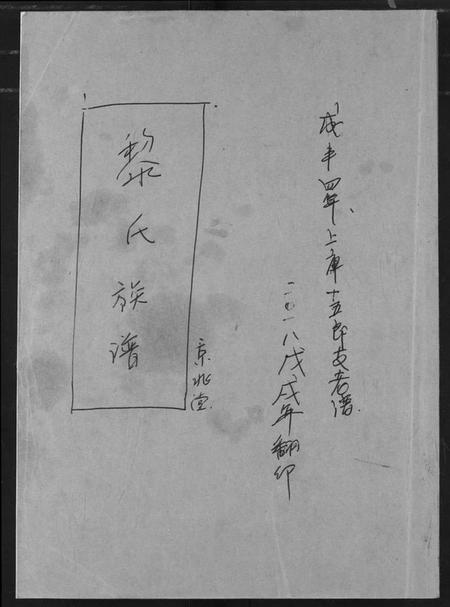 咸丰四年、上庠十五郎支老谱.
二〇一八戊戌年翻印
黎氏族谱
京兆堂.